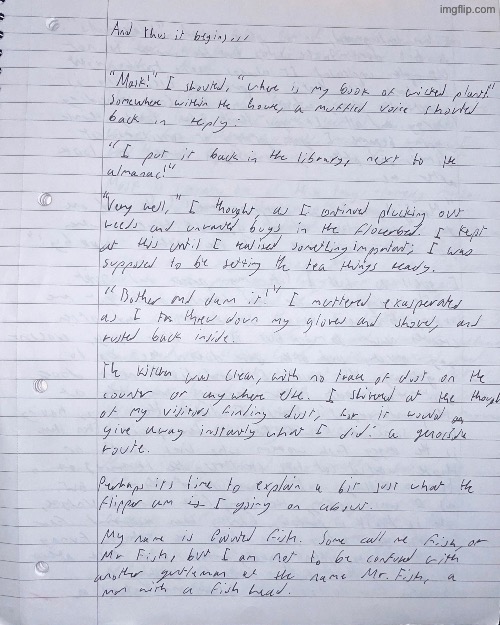 imgflip.com
And thus it begins...
"Mark!" I shouted, "where is my book of wicked plants!"
Somewhere within the house, a muffled voice shouted
back in reply:
"I put it back in the library, next to the
almanac!"
"Very well," I thought, as I continued plucking out
weeds and unwanted bugs in the flowerbed. I kept
at this until I realised something important; I was
supposed to be setting the tea things ready.
"Bother and dam it!" I muttered exasperated
as I threw down my gloves and shovel, and
rushed back inside.
The kitchen was clean, with no trace of dust on the
counter or anywhere else. I shivered at the thought
of my visitors finding dust, for it would
give away instantly what I did: a genocide
route.
Perhaps its time to explain a bit just what the
flipper am I going on about.
My name is Painted Fish. Some call me Fish, or
Mr Fish, but I am not to be confused with
another gentleman of the name Mr. Fish, a
man with a fish head.